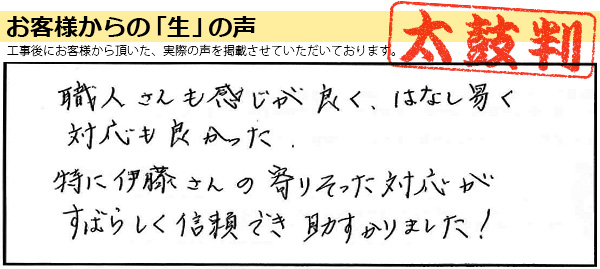 お客様からの「生」の声
工事後にお客様から頂いた、実際の声を掲載させていただいております。
太鼓判
職人さんも感じが良く、はなし易く
対応も良かった.
特に伊藤さんの寄りそった対応が
すばらしく信頼でき助すかりました!